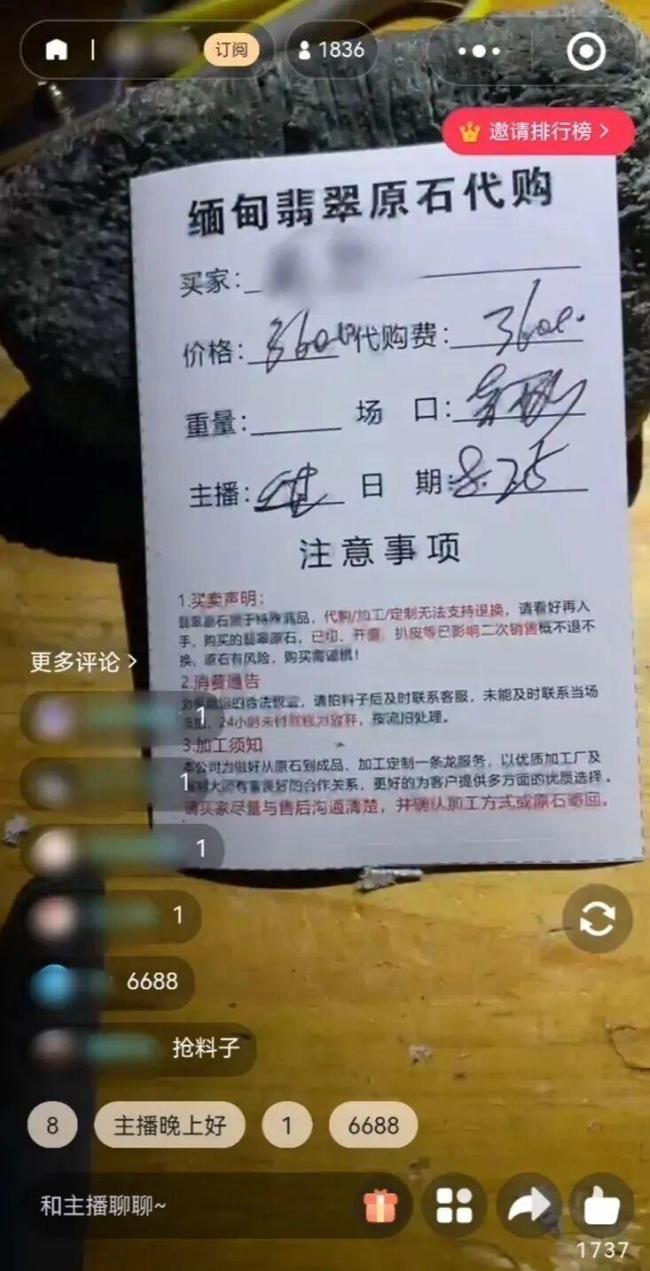 订阅
1836
邀请排行榜 >
缅甸翡翠原石代购
买家:
价格: 3600 代购费: 3600.
重量: 场 口:
主播: 日 期: 8.25
注意事项
1.买卖声明:
翡翠原石属于特殊商品，代购/加工/定制无法支持退换，请看好再入
手，购买的翡翠原石，已切、开窗、扒皮等已影响二次销售概不退不
换。原石有风险，购买需谨慎!
2.消费通告
的合法权益，请拍料子后及时联系客服，未能及时联系当场
24小时未付款视为放弃，按流旧处理。
3.加工须知
本公司力做好从原石到成品、加工定制一条龙服务，以优质加工厂及
大师有着良好的合作关系，更好的为客户提供多方面的优质选择。
请买家尽量与售后沟通清楚，并确认加工方式或原石寄回。
更多评论 >
1
1
1
1
6688
抢料子
8 主播晚上好 1 6688
和主播聊聊~
1737